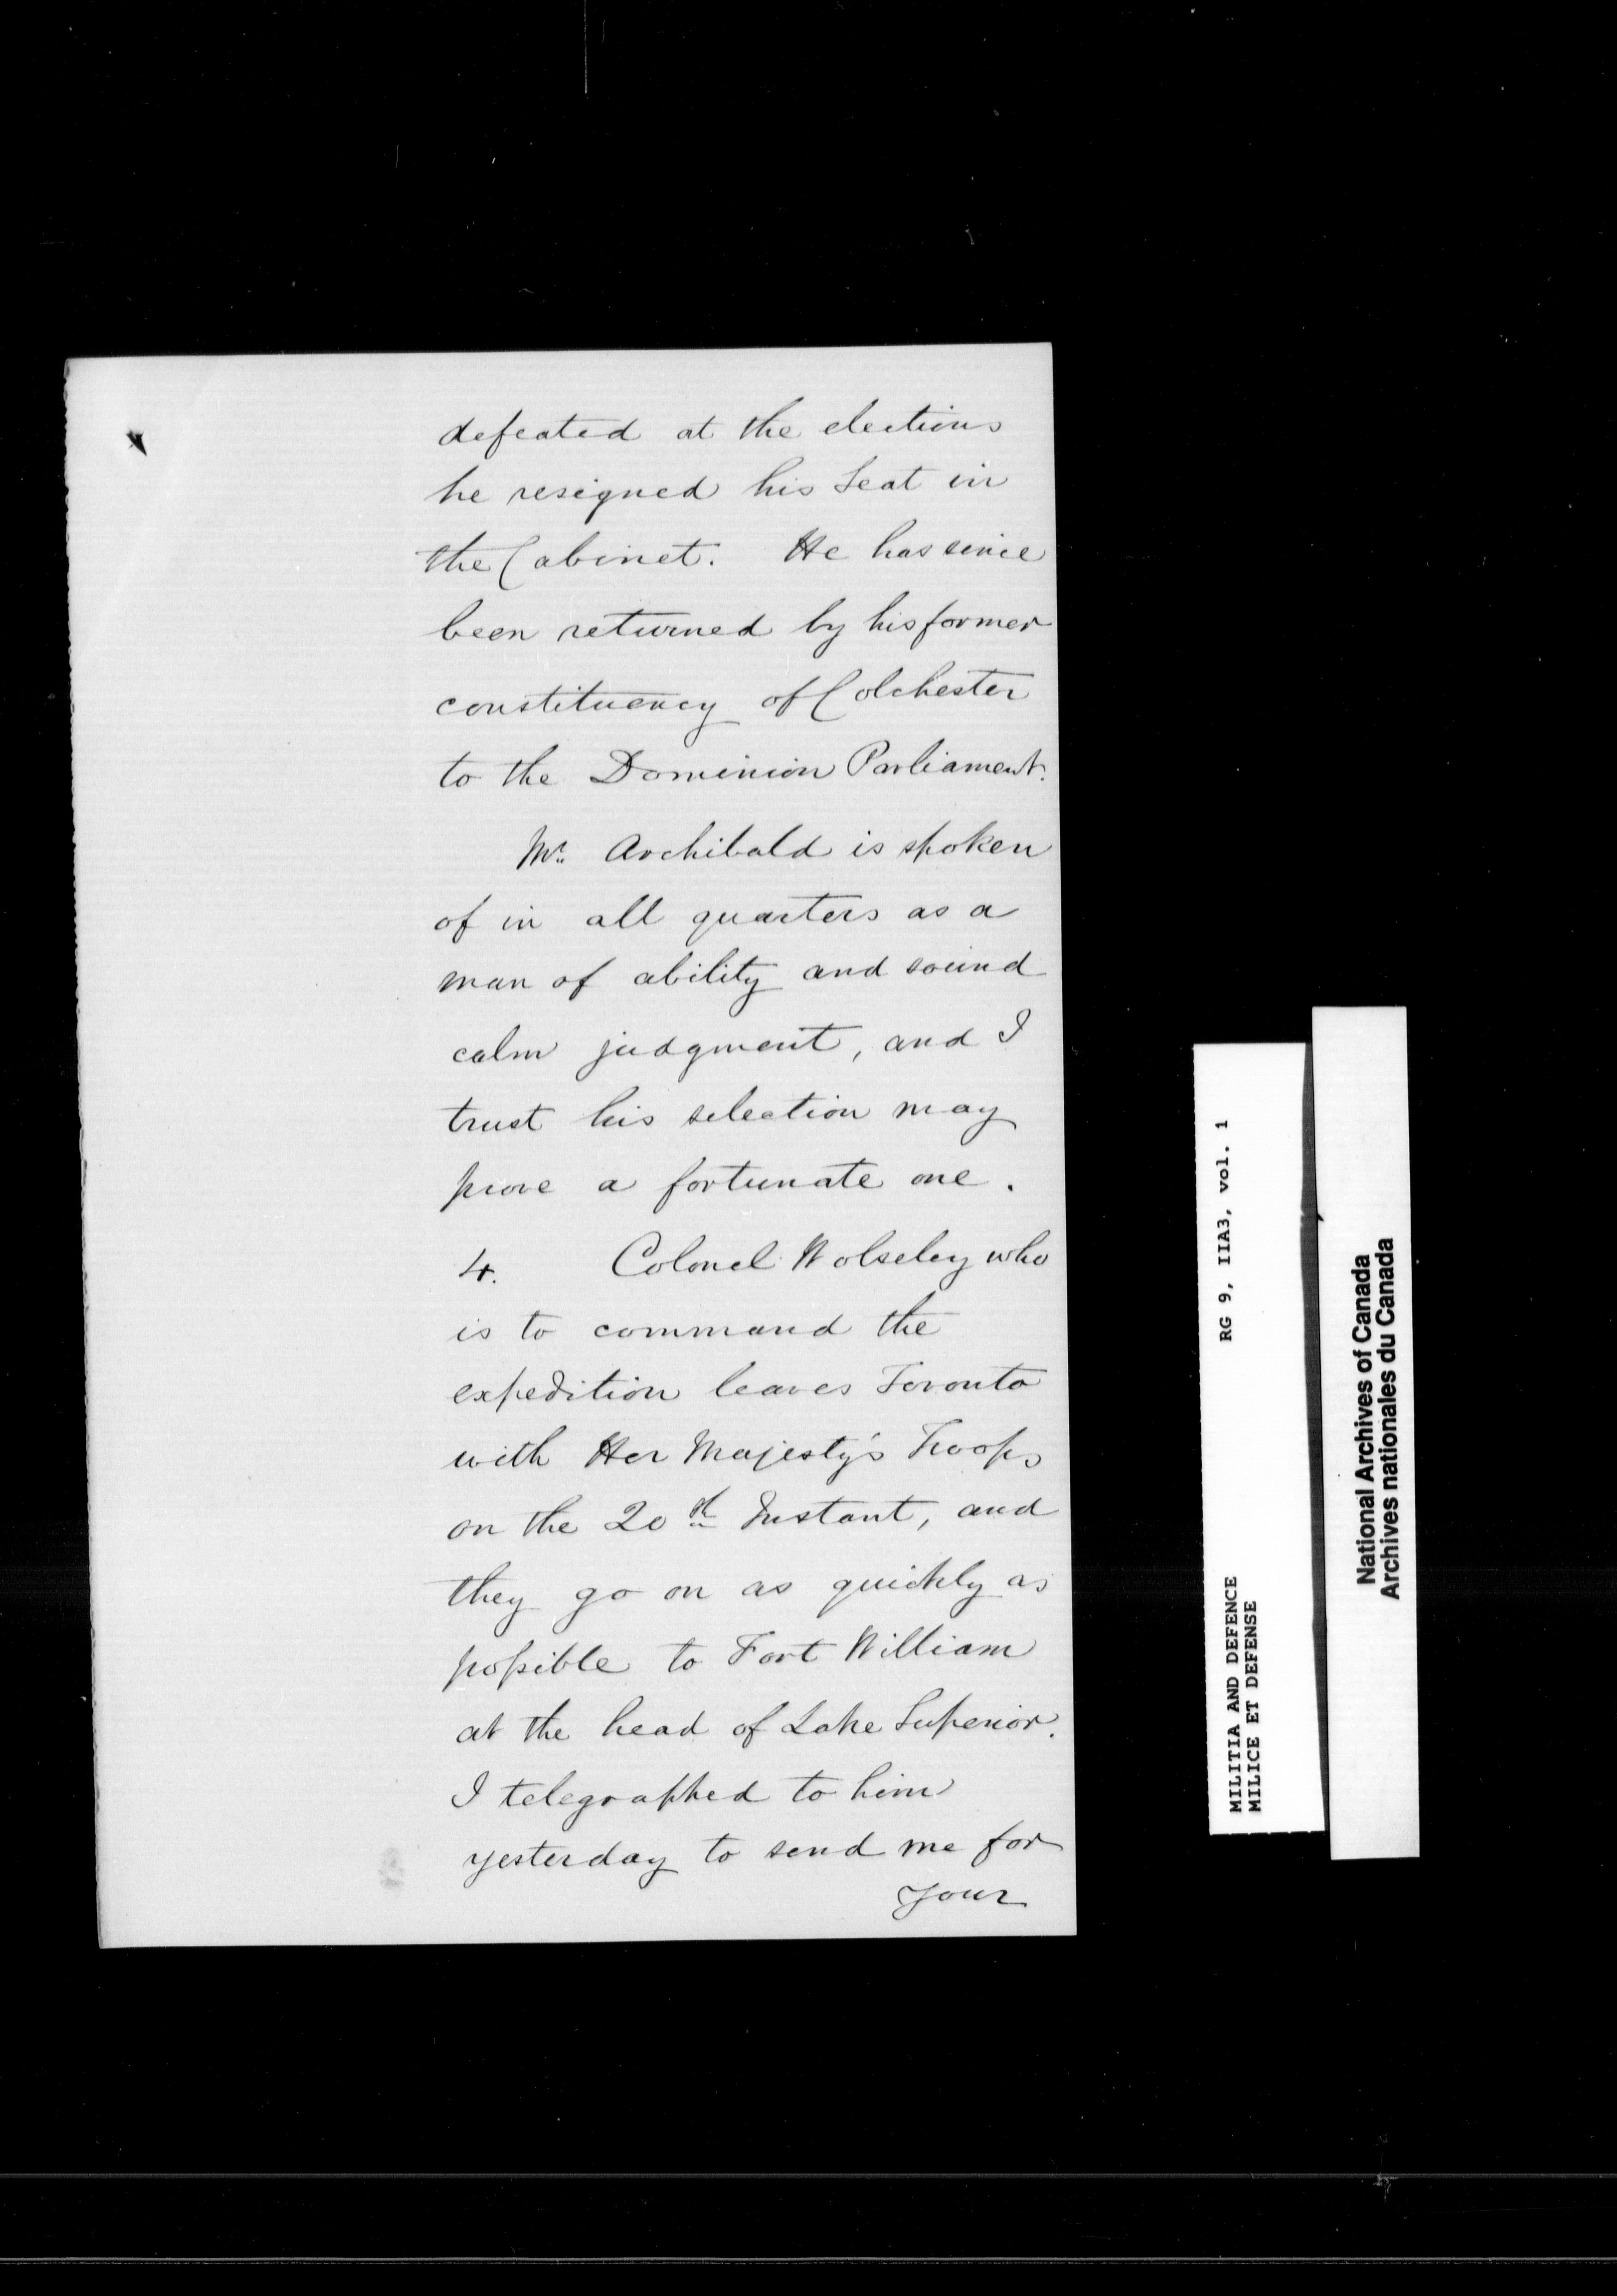 defeated at the elections
he resigned his Seat in
the Cabinet. He has since
been returned by his former
constituency of Colchester
to the Dominion Parliament.
Mr. Archibald is spoken
of in all quarters as a
man of ability and sound
calm judgment, and I
trust his selection may
prove a fortunate one.
4. Colonel Wolseley who
is to command the
expedition leaves Toronto
with Her Majesty's Troops
on the 20th Instant, and
they go on as quickly as
possible to Fort William
at the head of Lake Superior.
I telegraphed to him
yesterday to send me for
Your
MILITIA AND DEFENCE RG 9, IIA3, vol. 1
MILICE ET DEFENSE
National Archives of Canada
Archives nationales du Canada